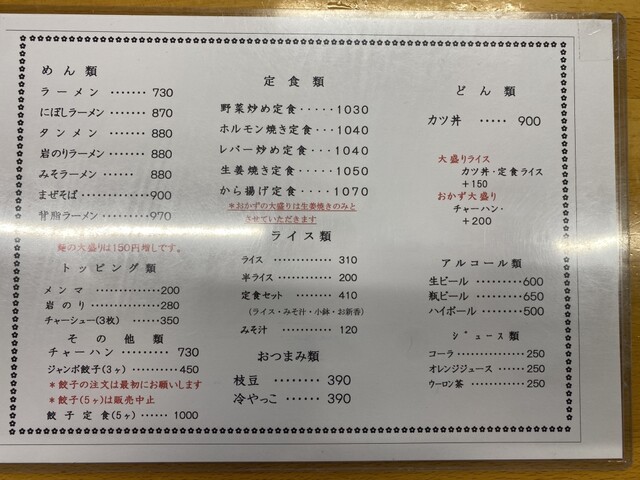 めん類
ラーメン ······· 730
にぼしラーメン ······· 870
タンメン ······· 880
岩のりラーメン ······ 880
みそラーメン ······ 880
まぜそば ·········900
背脂ラーメン ······970
麺の大盛りは150円増しです。
トッピング類
メンマ ·············200
岩のり ·············280
チャーシュー(3枚) ······350
その他類
チャーハン ········· 730
ジャンボ餃子(3ヶ) ··········450
*餃子の注文は最初にお願いします
*餃子(5ヶ)は販売中止
餃子定食(5ヶ) ······ 1000
定食類
野菜炒め定食·····1030
ホルモン焼き定食····1040
レバー炒め定食 ····1040
生姜焼き定食·····1050
から揚げ定食····1070
*おかずの大盛りは生姜焼きのみと
させていただきます
ライス類
ライス ············ 310
半ライス ···········200
定食セット ········ 410
(ライス・みそ汁・小鉢・お新香)
みそ汁 ············120
おつまみ類
枝豆 ········ 390
冷やっこ ····· 390
どん類
カツ丼 ····· 900
大盛りライス
カツ丼・定食ライス
+150
おかず大盛り
チャーハン・
+200
アルコール類
生ビール ·········600
瓶ビール ·········650
ハイボール ·······500
ジュース類
コーラ ··············250
オレンジジュース ······250
ウーロン茶 ···········250